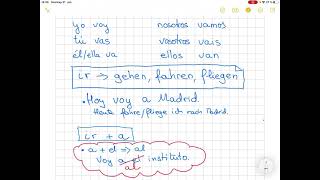 yo voy nosotros vamos
tú vas vosotros vais
él/ella va ellos van
ir → gehen, fahren, fliegen
• Hoy voy a Madrid.
Heute fahre/fliege ich nach Madrid.
ir + a
• a + el ⇒ al
Voy a el instituto.
al